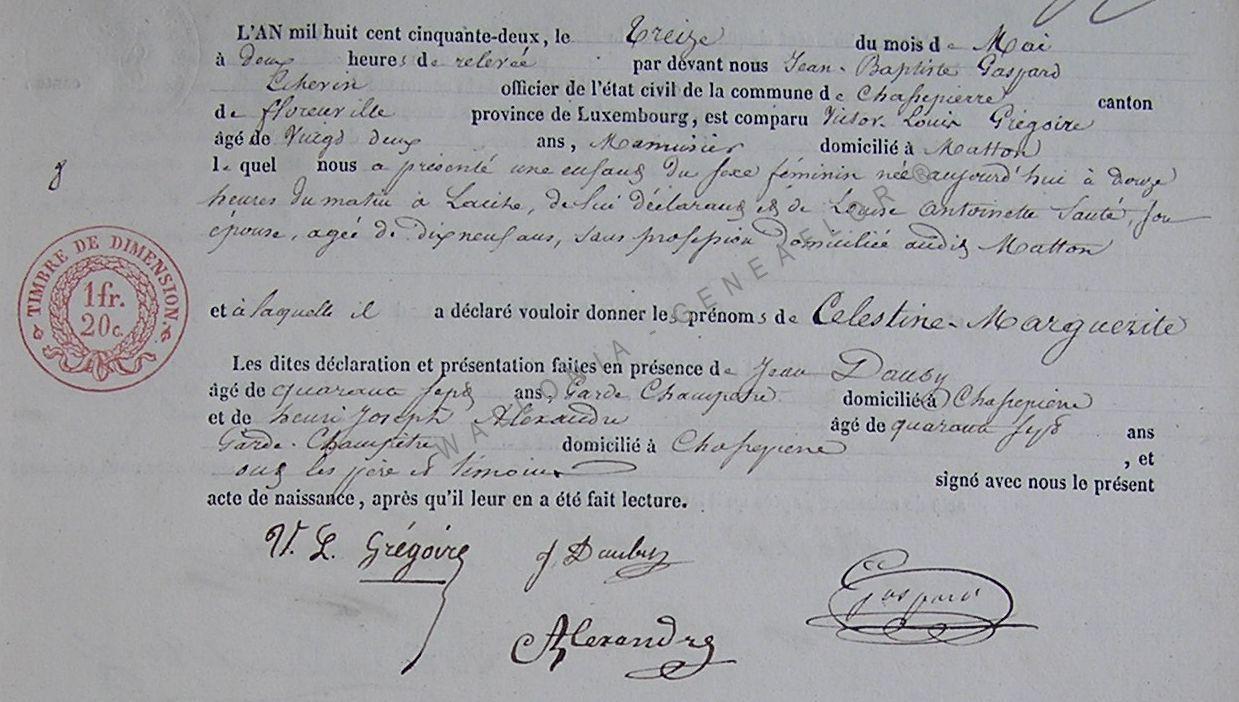 L'AN mil huit cent cinquante-deux, le Treize du mois de Mai
à deux heures de relevée par devant nous Jean-Baptiste Gaspard
Echevin officier de l'état civil de la commune de Chassepierre canton
de florenville province de Luxembourg, est comparu Victor Louis Grégoire
âgé de Vingt deux ans, Menuisier domicilié à Matton
lequel nous a présenté une enfant du sexe féminin née aujourd'hui à douze
heures du matin à Laiche, de lui déclarant et de Louise Antoinette Sauté, son
épouse, agée de dixneuf ans, sans profession domiciliée audit Matton
et à laquelle il a déclaré vouloir donner les prénoms de Celestine Marguerite
Les dites déclaration et présentation faites en présence de Jean Dauby
âgé de quarante sept ans, Garde Champêtre domicilié à Chassepierre
et de henri Joseph Alexandre âgé de quarante sept ans
Garde-Champêtre domicilié à Chassepierre, et
ont les père et témoins signé avec nous le présent
acte de naissance, après qu'il leur en a été fait lecture.
V. L. Grégoire J Dauby
Gaspard
Alexandre
TIMBRE DE DIMENSION.
1 fr.
20 c.
WALLONIA - GENEAFLOR ®